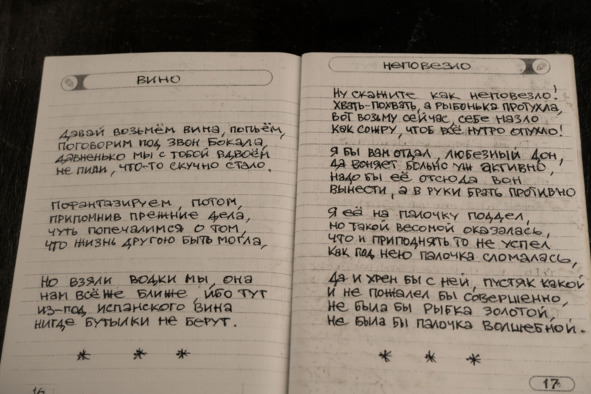 ВИНО
ДАВАЙ ВОЗЬМЁМ ВИНА, ПОПЬЁМ,
ПОГОВОРИМ ПОД ЗВОН БОКАЛА,
ДАВНЕНЬКО МЫ С ТОБОЙ ВДВОЁМ
НЕ ПИЛИ, ЧТО-ТО СКУЧНО СТАЛО.
ПОФАНТАЗИРУЕМ, ПОТОМ,
ПРИПОМНИВ ПРЕЖНИЕ ДЕЛА,
ЧУТЬ ПОПЕЧАЛИМСЯ О ТОМ,
ЧТО ЖИЗНЬ ДРУГОЮ БЫТЬ МОГЛА,
НО ВЗЯЛИ ВОДКИ МЫ, ОНА
НАМ ВСЁ ЖЕ БЛИЖЕ, ИБО ТУТ
ИЗ-ПОД ИСПАНСКОГО ВИНА
НИГДЕ БУТЫЛКИ НЕ БЕРУТ.
* * *
16
НЕПОВЕЗЛО
НУ СКАЖИТЕ КАК НЕПОВЕЗЛО!
ХВАТЬ-ПОХВАТЬ, А РЫБОНЬКА ПРОТУХЛА,
ВОТ ВОЗЬМУ СЕЙЧАС, СЕБЕ НАЗЛО
КАК СОЖРУ, ЧТОБ ВСЁ НУТРО ОПУХЛО!
Я БЫ ВАМ ОТДАЛ, ЛЮБЕЗНЫЙ ДОН,
ДА ВОНЯЕТ БОЛЬНО УЖ АКТИВНО,
НАДО БЫ ЕЁ ОТСЮДА ВОН
ВЫНЕСТИ, А В РУКИ БРАТЬ ПРОТИВНО
Я ЕЁ НА ПАЛОЧКУ ПОДДЕЛ,
НО ТАКОЙ ВЕСОМОЙ ОКАЗАЛАСЬ,
ЧТО И ПРИПОДНЯТЬ ТО НЕ УСПЕЛ
КАК ПОД НЕЮ ПАЛОЧКА СЛОМАЛАСЬ,
ДА И ХРЕН БЫ С НЕЙ, ПУСТЯК КАКОЙ
И НЕ ПОЖАЛЕЛ БЫ СОВЕРШЕННО,
НЕ БЫЛА БЫ РЫБКА ЗОЛОТОЙ,
НЕ БЫЛА БЫ ПАЛОЧКА ВОЛШЕБНОЙ.
* * *
17